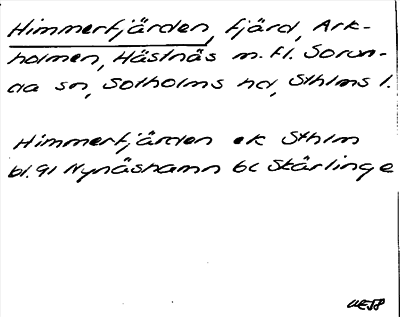 Himmerfjärden, fjärd, Ark-
holmen, Hästnäs m.fl. Sorun-
da sn, Sotholms hd, Sthlms l.
Himmerfjärden ek Sthlm
bl. 91 Nynäshamn 6c Skärlinge